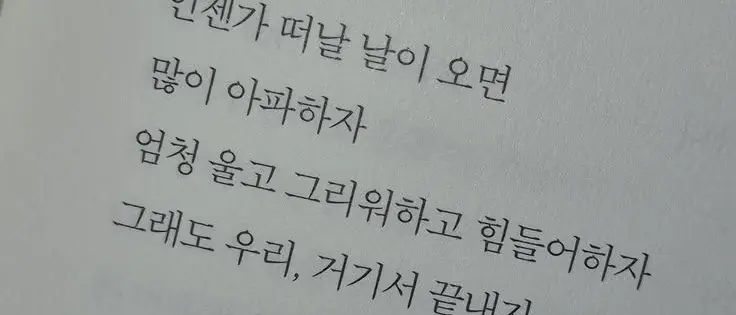 언젠가 떠날 날이 오면
많이 아파하자
엄청 울고 그리워하고 힘들어하자
그래도 우리, 거기서